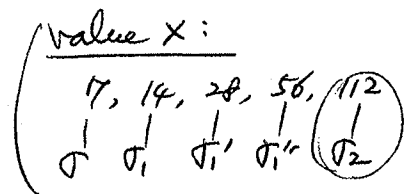 value x:
7, 14, 28, 56, 112
σ σ₁ σ₁' σ₁'' σ₂